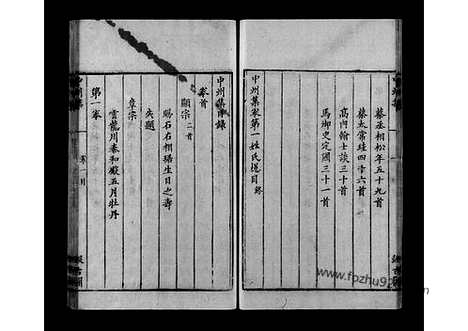 蔡丞相松年五十九首
蔡太常珪四十六首
高內翰士談三十首
馬御史定國三十一首
中州集卷第一姓氏總目終
中州集目錄
卷首
顯宗二首
賜石右相琚生日之壽
失題
章宗
雲龍川泰和殿五月牡丹
第一卷
汲古閣